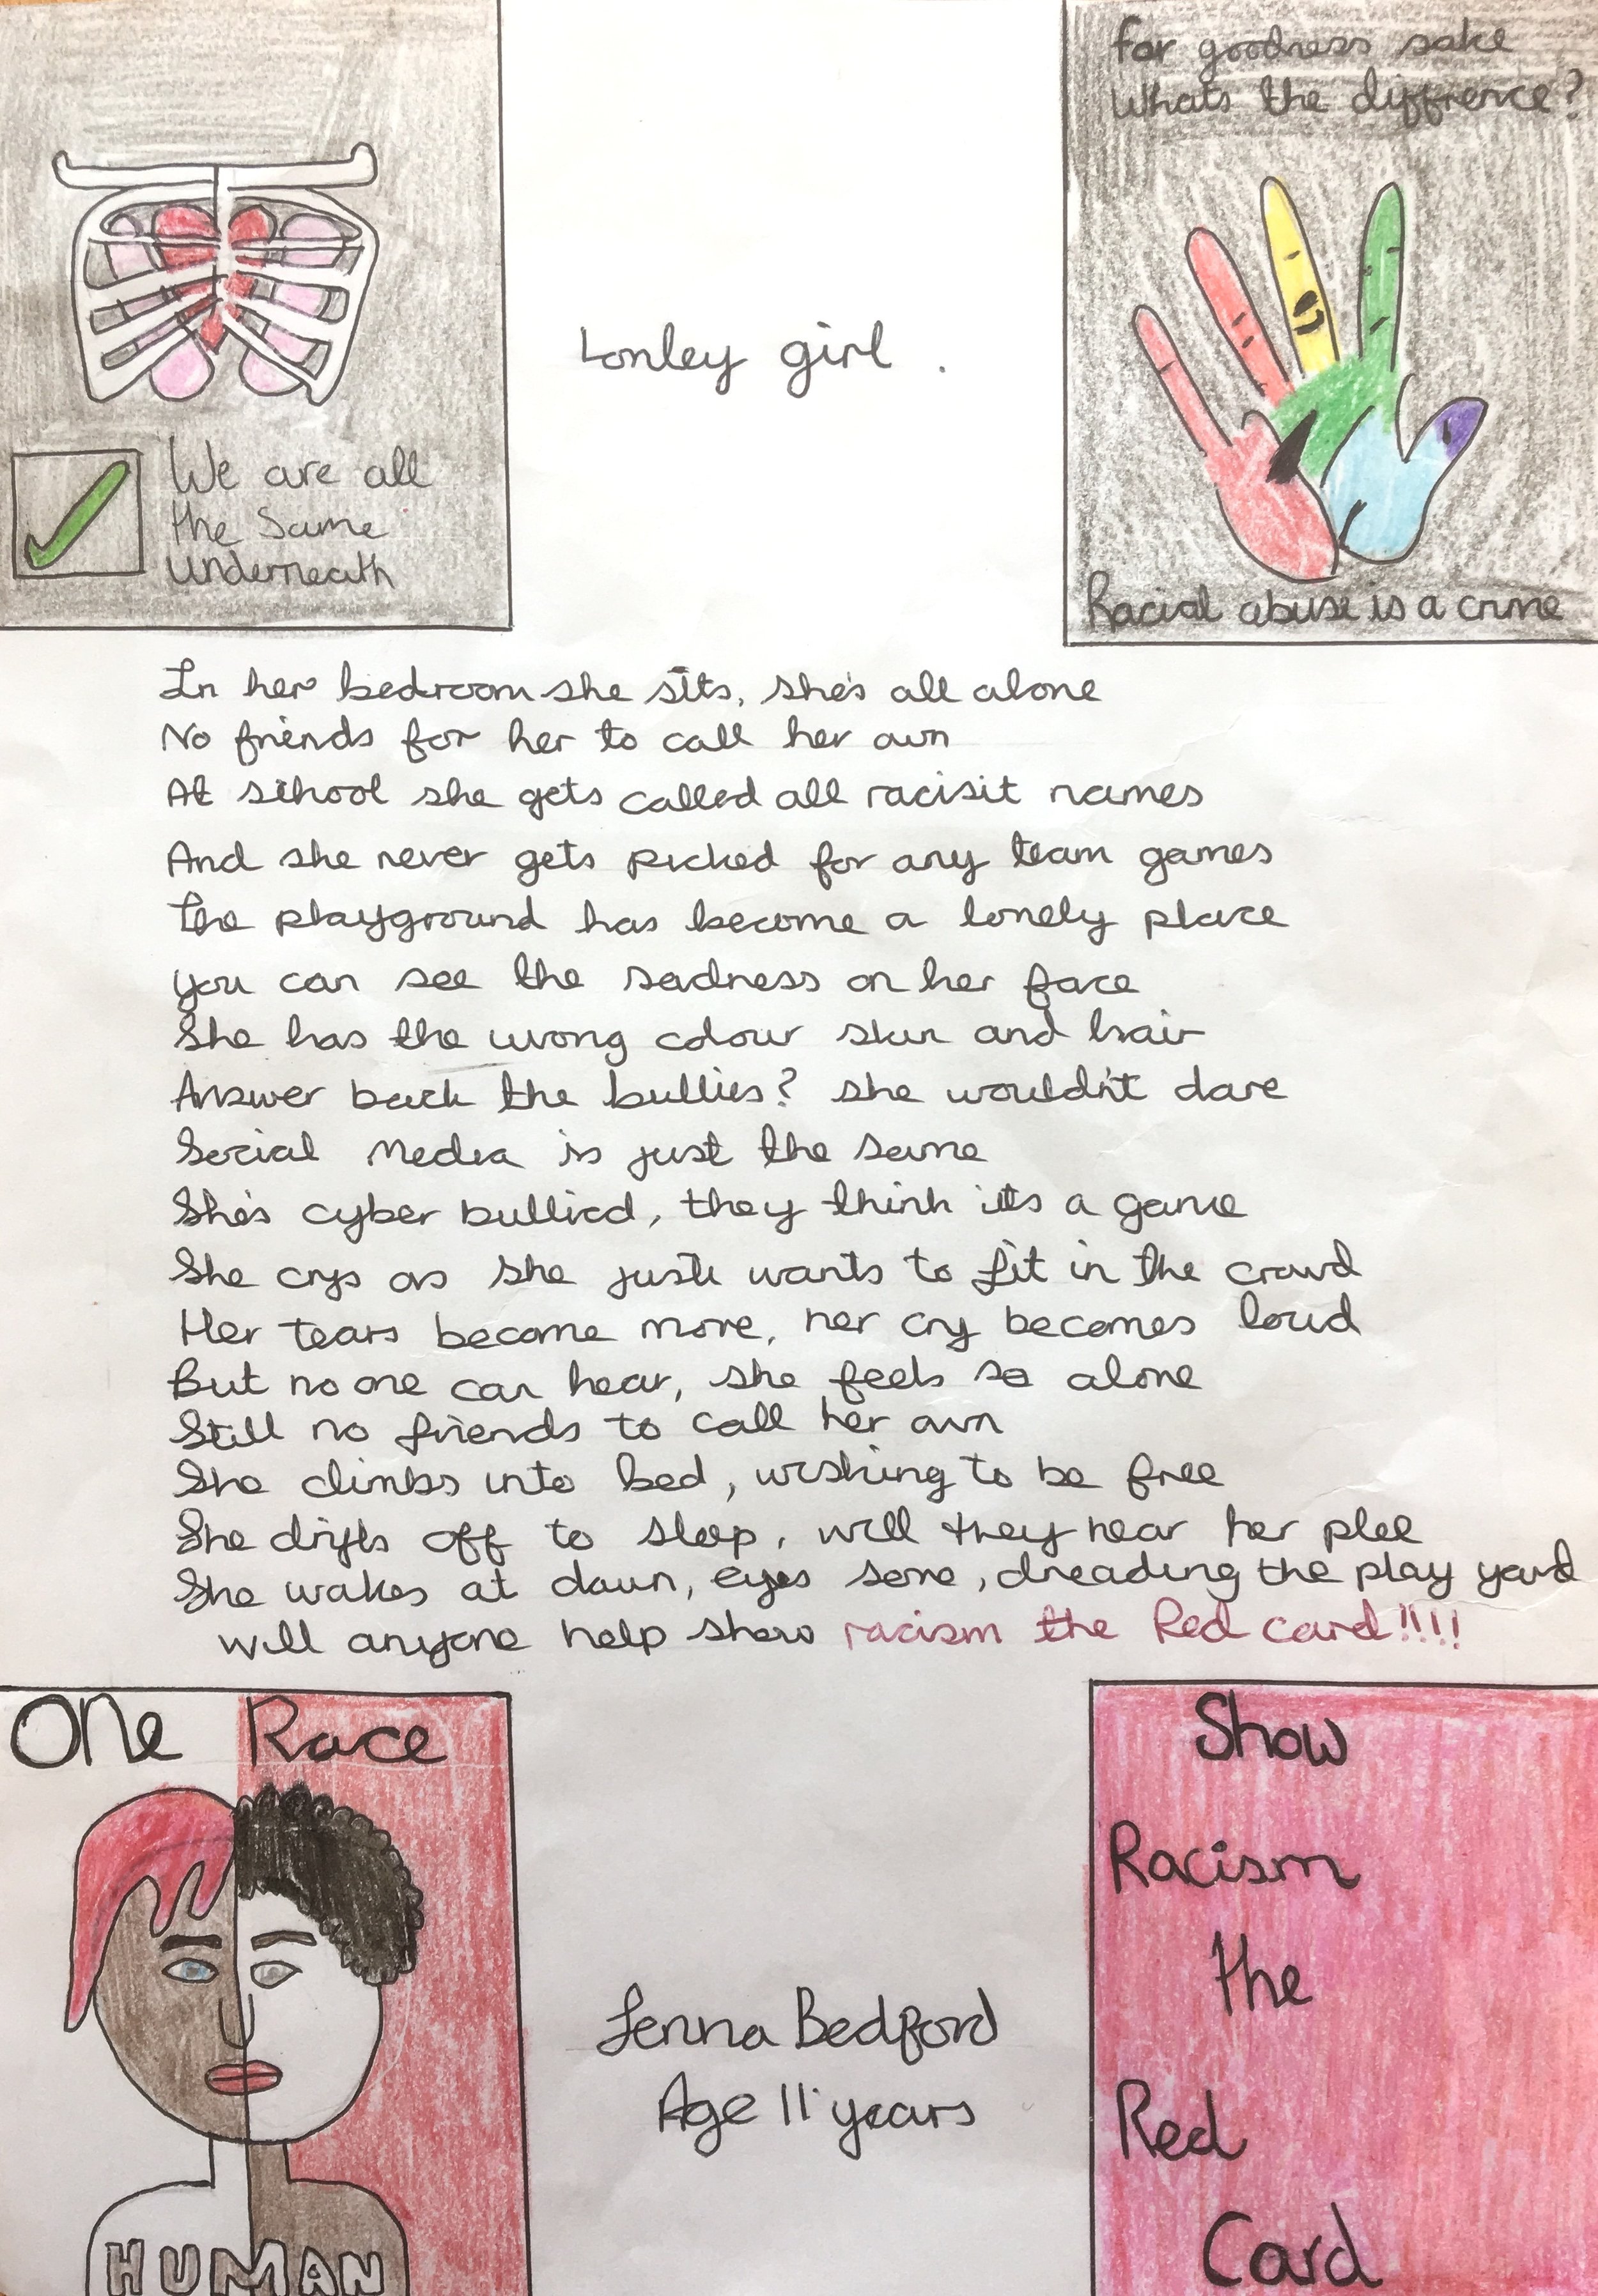 We are all
the same
underneath
for goodness sake
Whats the diffrence?
Racial abuse is a crime
Lonley girl.
In her bedroom she sits, she's all alone
No friends for her to call her own
At school she gets called all racisit names
And she never gets picked for any team games
The playground has become a lonely place
you can see the sadness on her face
She has the wrong colour skin and hair
Answer back the bullies? she wouldn't dare
Social Media is just the same
She's cyber bullied, they think it's a game
She crys as she just wants to fit in the crowd
Her tears become more, her cry becomes loud
But no one can hear, she feels so alone
Still no friends to call her own
She climbs into bed, wishing to be free
She drifts off to sleep, will they hear her plee
She wakes at dawn, eyes sore, dreading the play yard
will anyone help show racism the Red card!!!!
One Race
HUMAN
Jenna Bedford
Age 11 years
Show
Racism
the
Red
Card